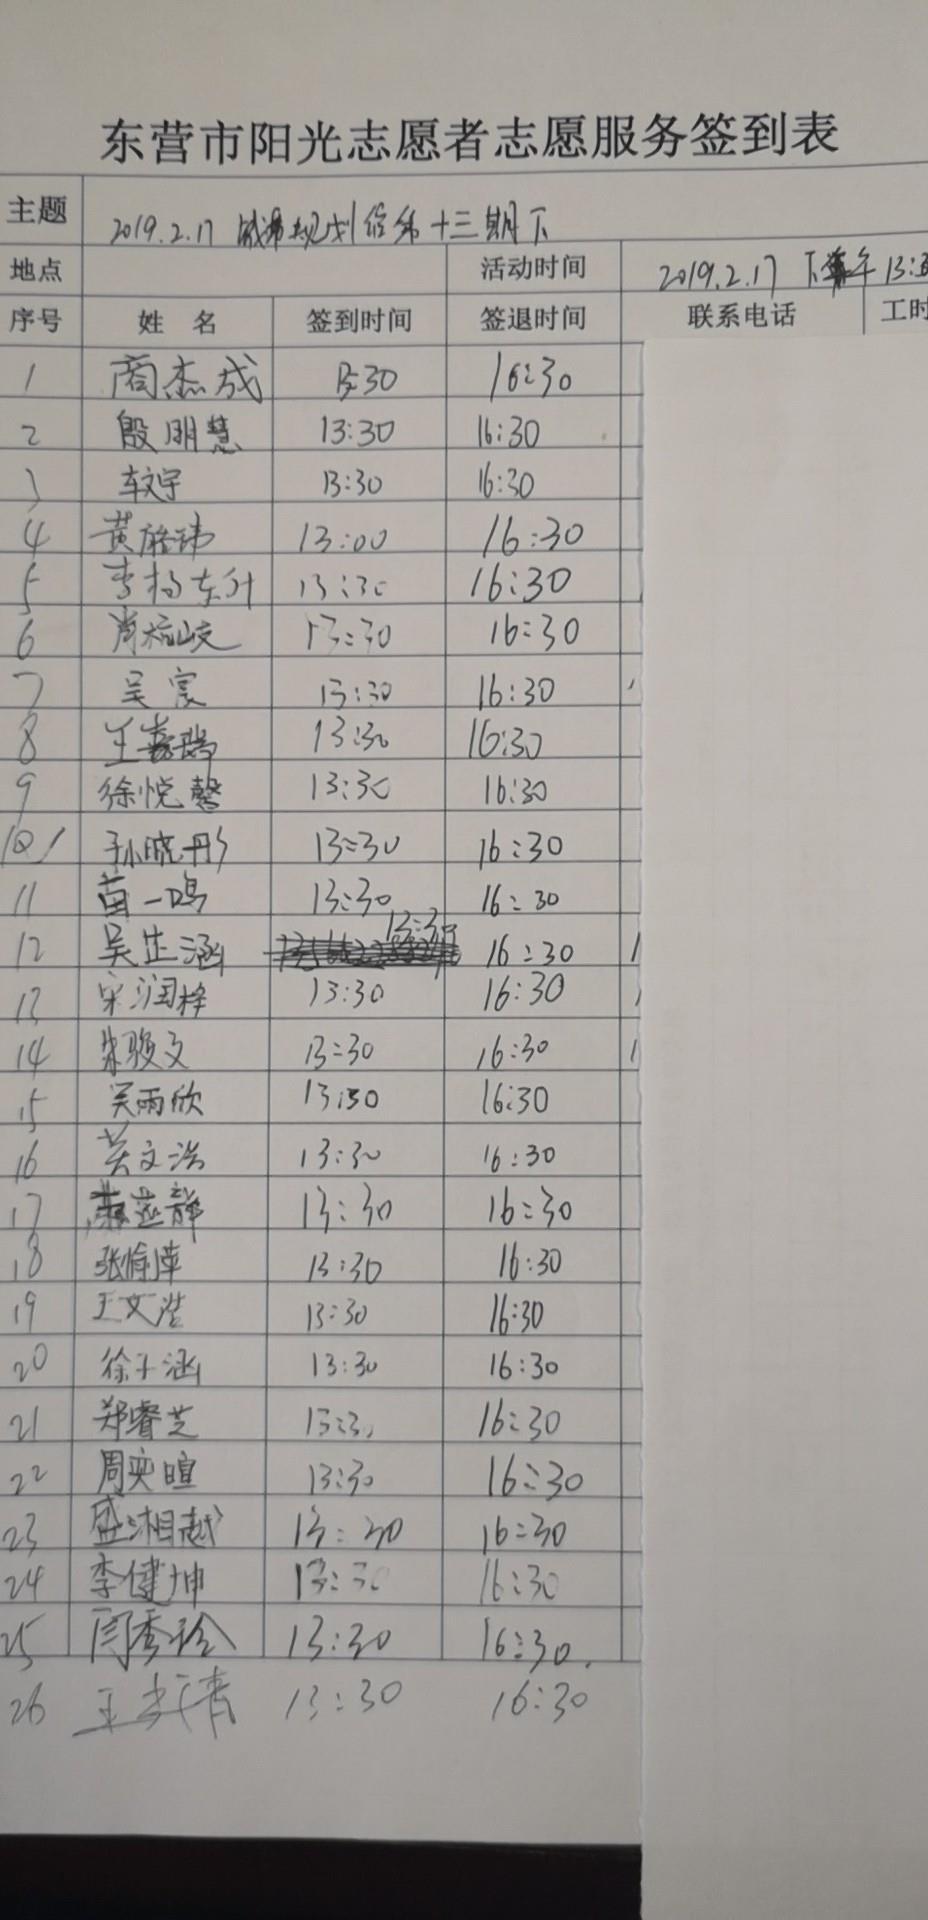 东营市阳光志愿者志愿服务签到表
主题 2019.2.17 城市规划馆第十三期下
地点 活动时间 2019.2.17 下午13:3
序号 姓名 签到时间 签退时间 联系电话 工时
1 商杰成 13:30 16:30
2 殷明慧 13:30 16:30
3 车文宇 13:30 16:30
4 黄 13:00 16:30
5 李杨东升 13:30 16:30
6 肖 13:30 16:30
7 吴宸 13:30 16:30
8 王嘉瑞 13:30 16:30
9 徐悦馨 13:30 16:30
10 孙晓彤 13:30 16:30
11 苗一鸣 13:30 16:30
12 吴芷涵 13:30 16:30
13 宋润梓 13:30 16:30
14 朱骏文 13:30 16:30
15 吴雨欣 13:30 16:30
16 黄文浩 13:30 16:30
17 13:30 16:30
18 张愉 13:30 16:30
19 王文浩 13:30 16:30
20 徐子涵 13:30 16:30
21 郑睿芝 13:30 16:30
22 周奕暄 13:30 16:30
23 盛湘越 13:30 16:30
24 李健坤 13:30 16:30
25 闫秀玲 13:30 16:30.
26 王 青 13:30 16:30